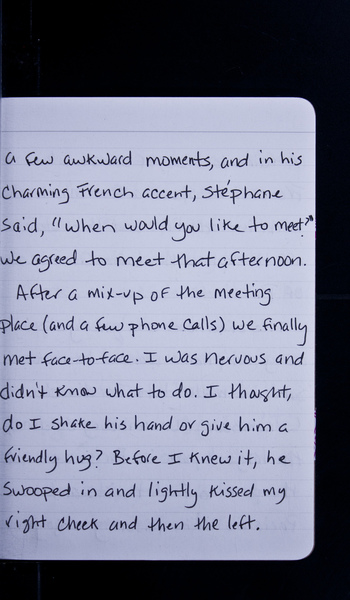 a few awkward moments, and in his
charming French accent, Stéphane
said, "When would you like to meet?"
We agreed to meet that afternoon.
After a mix-up of the meeting
place (and a few phone calls) we finally
met face-to-face. I was nervous and
didn't know what to do. I thought,
do I shake his hand or give him a
friendly hug? Before I knew it, he
swooped in and lightly kissed my
right cheek and then the left.